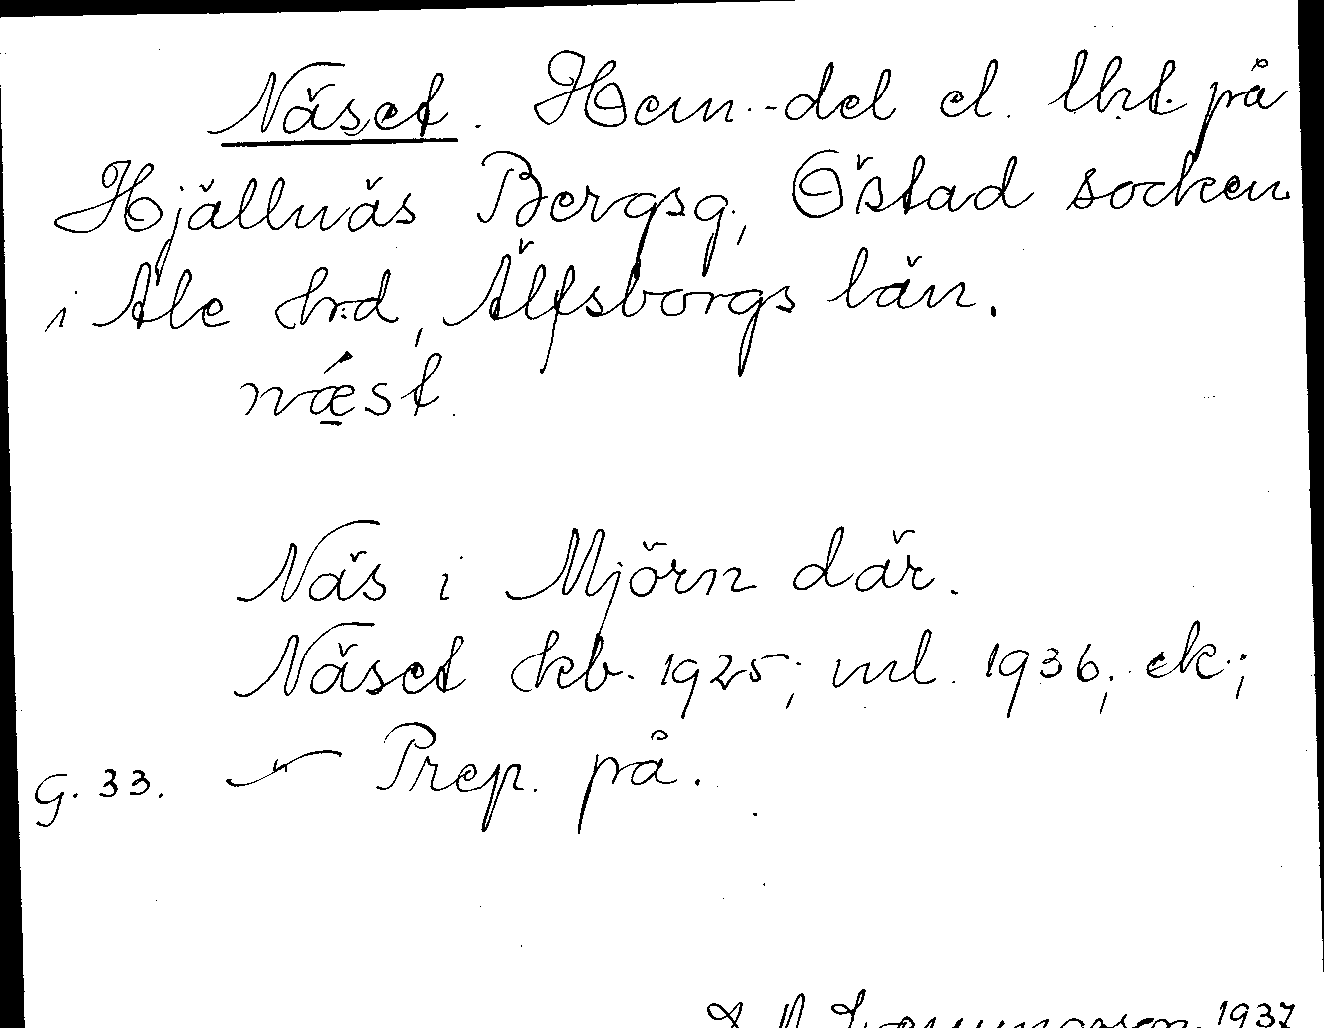 Näset. Hem.-del el. lht. på
Hjällnäs Bergsg., Östad socken
i Ale hrd, Älfsborgs län.
nǽ̠st.
Näs i Mjörn där.
Näset hkb. 1925; ml. 1936; ek.;
G. 33. ~ Prep. på.
1937